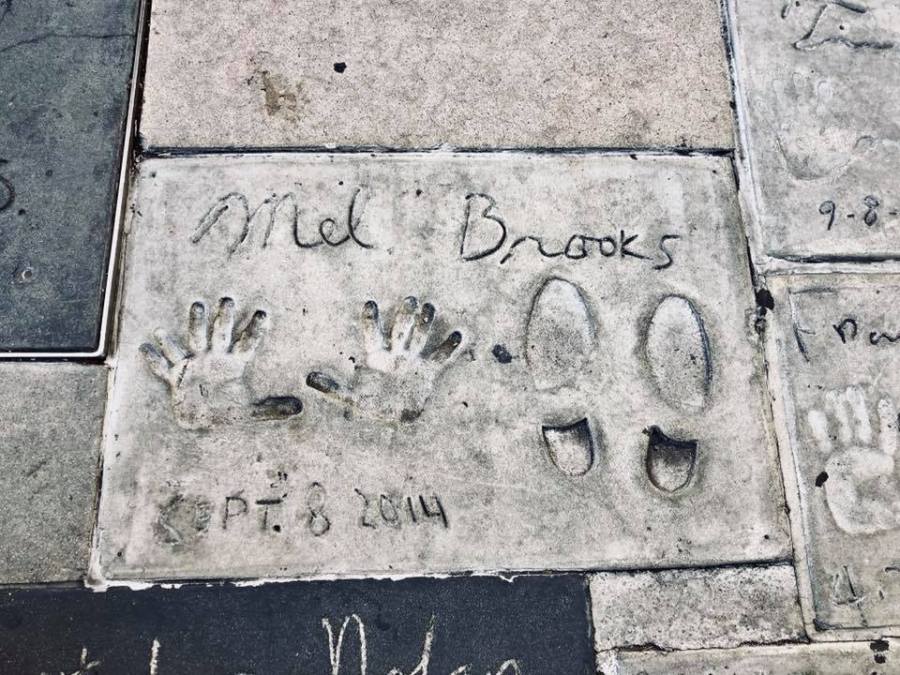 Mel Brooks
SEPT. 8 2014
9-8-
Nolan